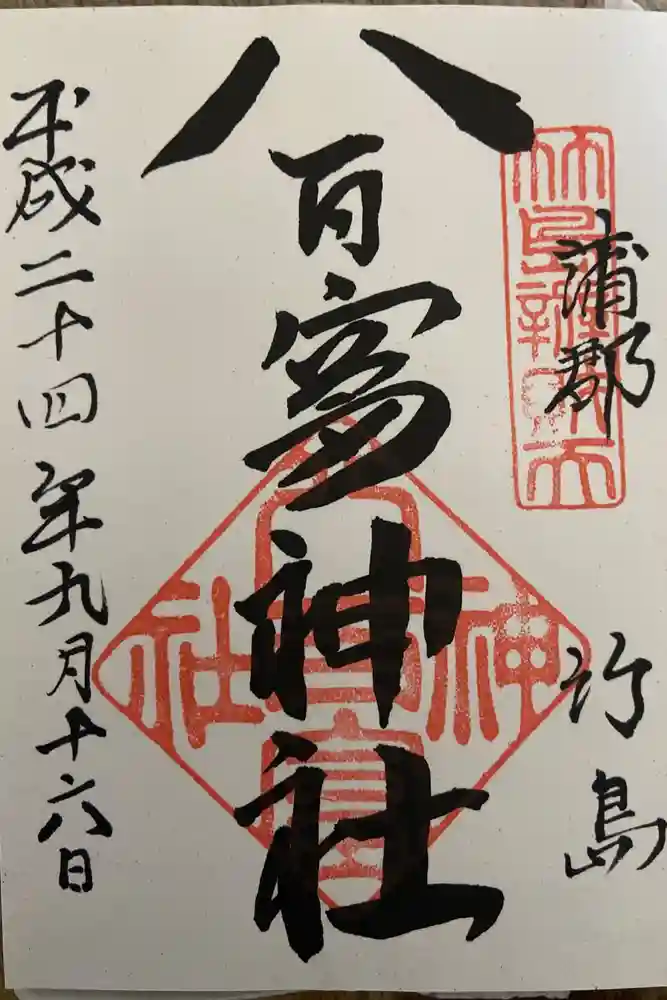 蒲郡
竹島
八百富神社
平成二十四年九月十六日
八百富神社